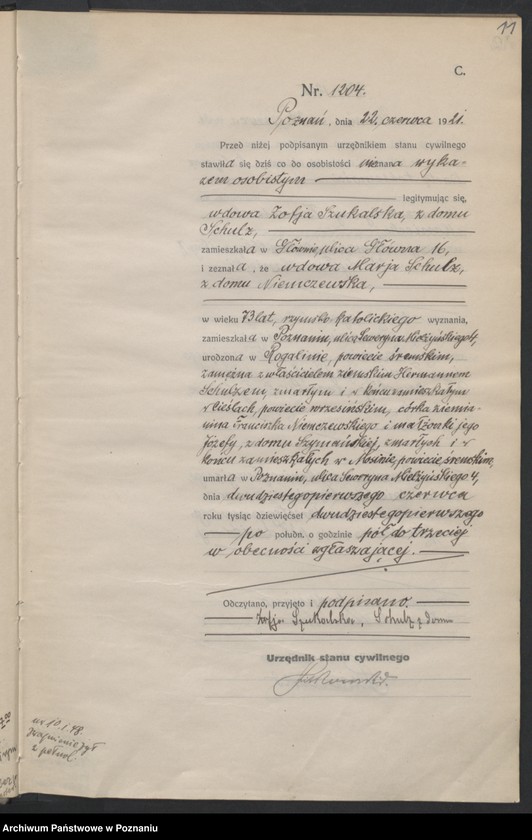 11
C.
Nr. 1204.
Poznań, dnia 22. czerwca 1921.
Przed niżej podpisanym urzędnikiem stanu cywilnego
stawiła się dziś co do osobistości nieznana wyka-
zem osobistym
legitymując się,
wdowa Zofja Szukalska, z domu
Schulz,
zamieszkała w Głównie, ulica Główna 16,
i zeznała, że wdowa Marja Schulz,
z domu Niemczewska,
w wieku 73 lat, rzymsko katolickiego wyznania,
zamieszkała w Poznaniu, ulica Seweryna Mielżyńskiego 4,
urodzona w Rogalinie, powiecie śremskim,
zamężna z właścicielem ziemskim Hermannem
Schulzem, zmarłym i w końcu zamieszkałym
w Cieślach, powiecie wrzesińskim, córka ziemia-
nina Franciszka Niemczewskiego i małżonki jego
Józefy, z domu Szymańskiej, zmarłych i w
końcu zamieszkałych w Mosinie, powiecie śremskim,
umarła w Poznaniu, ulica Seweryna Mielżyńskiego 4,
dnia dwudziestego pierwszego czerwca
roku tysiąc dziewięćset dwudziestego pierwszego
po połudn. o godzinie pół do trzeciej
w obecności zgłaszającej.
Odczytano, przyjęto i podpisano.
Zofja Szukalska, Schulz z domu
Urzędnik stanu cywilnego
10.1.48
Archiwum Państwowe w Poznaniu